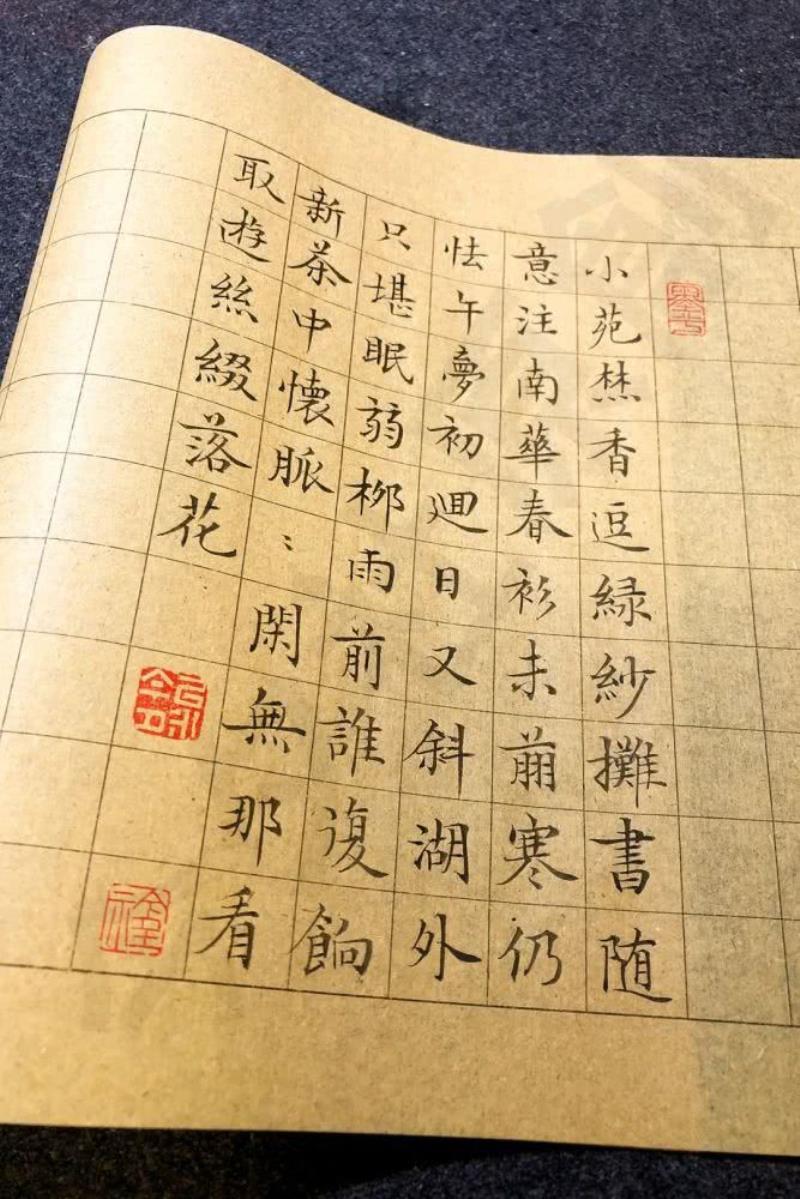 小苑焚香逗緑紗攤書随
意注南華春衫未翦寒仍
怯午夢初廻日又斜湖外
只堪眠弱栁雨前誰復餉
新茶中懐脈〻閑無那看
取遊絲綴落花